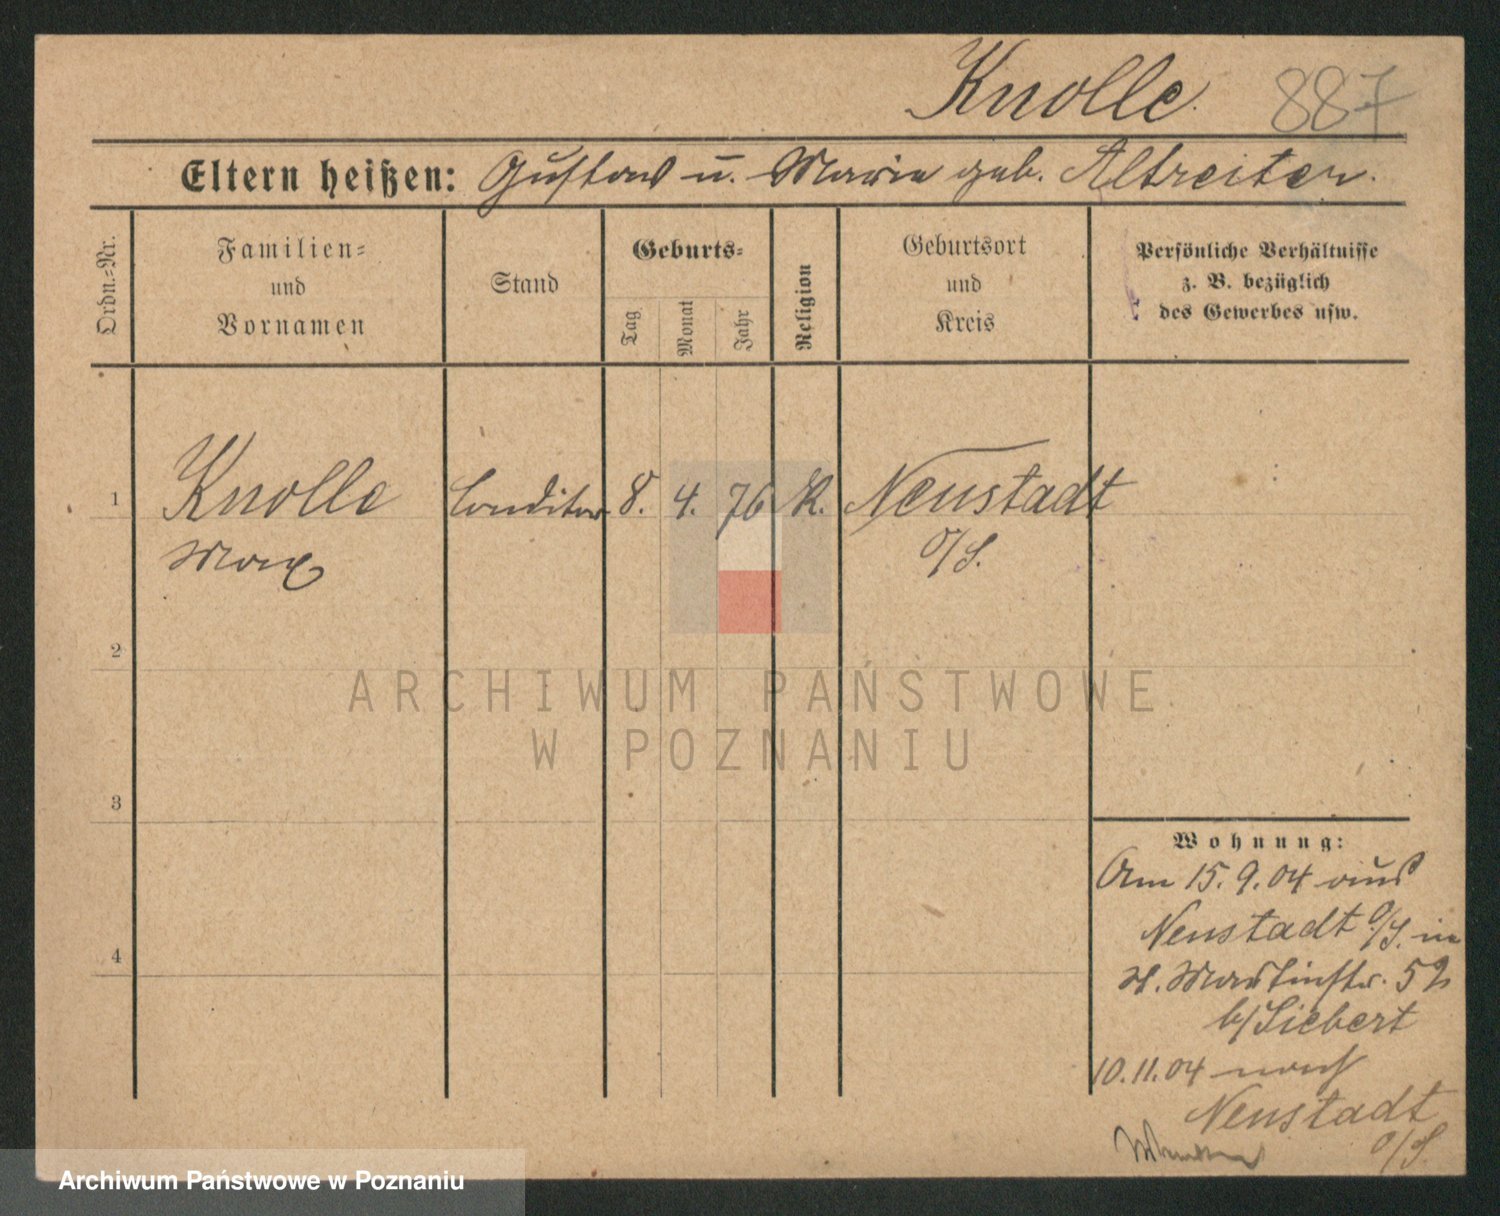 Knolle 887
Eltern heißen: Gustav u. Marie geb. Altreiter.
Ordn.-Nr.
Familien-
und
Vornamen
Stand
Geburts-
Tag
Monat
Jahr
Religion
Geburtsort
und
Kreis
Persönliche Verhältnisse
z. B. bezüglich
des Gewerbes usw.
1 Knolle Conditor 8. 4. 76 K. Neustadt
Max O/S.
2
3
4
ARCHIWUM PAŃSTWOWE
W POZNANIU
Wohnung:
Am 15.9.04 aus
Neustadt O/S. in
St. Martinstr. 52
b/Siebert
10.11.04 nach
Neustadt
O/S.
Archiwum Państwowe w Poznaniu